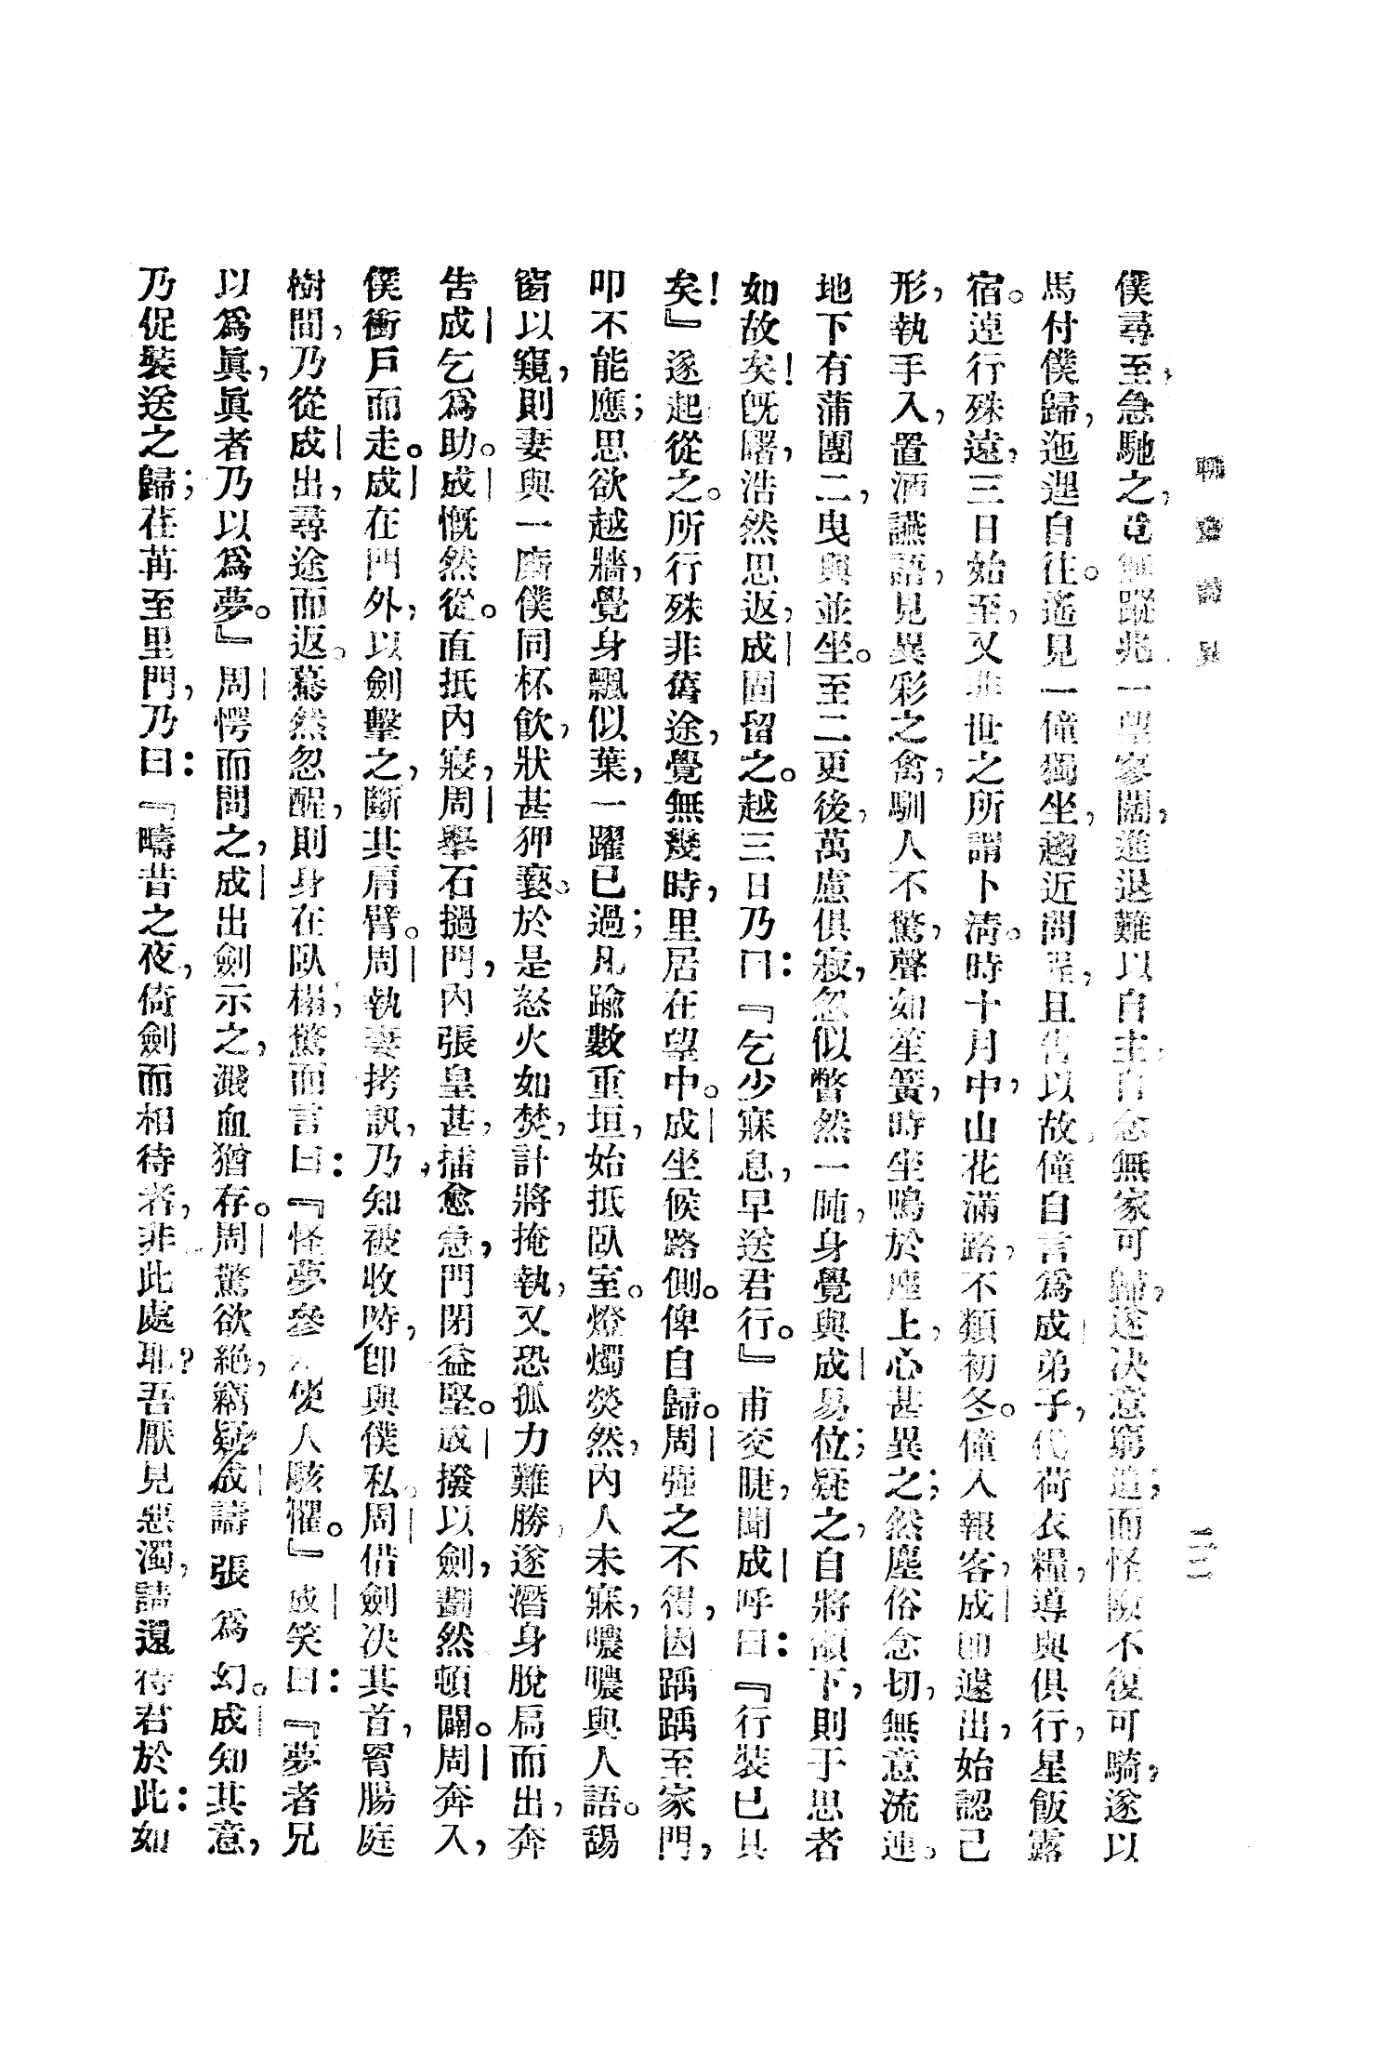 聊齋誌異
二二
僕尋至急馳之，竟無蹤兆一望寥闊，進退難以自主，自念無家可歸，遂決意窮追；而怪險不復可騎，遂以
馬付僕歸，迤逦自往。遙見一僮獨坐，趨近問程，且告以故，僮自言爲成弟子，代荷衣糧，導與俱行，星飯露
宿。逴行殊遠，三日始至，又非世之所謂卜淸。時十月中，山花滿路，不類初冬。僮入報客，成卽遽出，始認己
形，執手入，置酒讌語，見異彩之禽，馴人不驚，聲如笙簧，時坐鳴於座上，心甚異之；然塵俗念切，無意流連。
地下有蒲團二，曳與並坐。至二更後，萬慮俱寂，忽似瞥然一盹，身覺與成易位；疑之，自將頷下，則于思者
如故矣！旣曙，浩然思返，成固留之。越三日乃曰：『乞少寐息，早送君行。』甫交睫，聞成呼曰：『行裝已具
矣！』遂起從之。所行殊非舊途，覺無幾時，里居在望中。成坐候路側。俾自歸。周强之不得，因踽踽至家門，
叩不能應；思欲越牆，覺身飄似葉，一躍已過；凡踰數重垣，始抵臥室。燈燭熒然，內人未寐，噥噥與人語。䑛
窗以窺，則妻與一廝僕同杯飮，狀甚狎褻。於是怒火如焚，計將掩執，又恐孤力難勝，遂潛身脫扃而出，奔
吿成乞爲助。成慨然從。直抵內寢，周舉石撾門，內張皇甚，擂愈急，門閉益堅。成撥以劍，劃然頓闢。周奔入，
僕衝戶而走。成在門外，以劍擊之，斷其肩臂。周執妻拷訊，乃知被收時，卽與僕私。周借劍決其首，罥腸庭
樹間，乃從成出，尋途而返。驀然忽醒，則身在臥榻，驚而言曰：『怪夢參使人駭懼。』成笑曰：『夢者兄
以爲眞，眞者乃以爲夢。』周愕而問之，成出劍示之，濺血猶存。周驚欲絕，竊疑成譸張爲幻。成知其意，
乃促裝送之歸；荏苒至里門，乃曰：『疇昔之夜，倚劍而相待者，非此處耶？吾厭見惡濁，請還待君於此：如